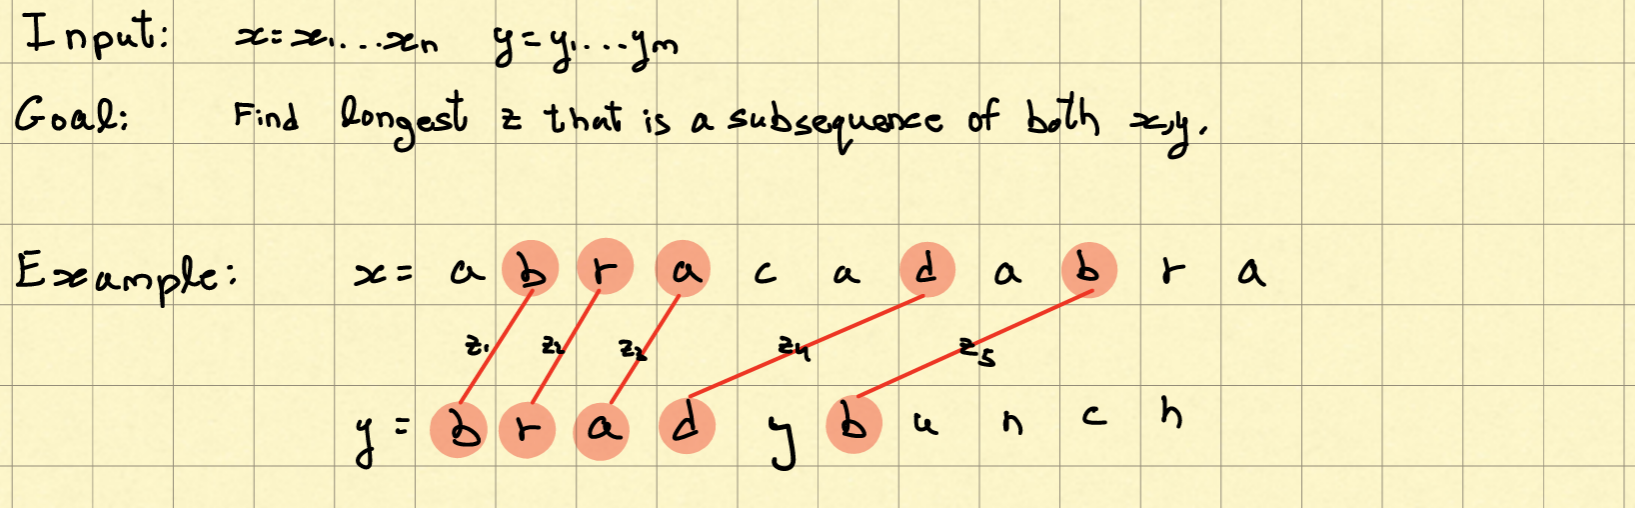 Input: x=x₁...xₙ y=y₁...yₘ
Goal: Find longest z that is a subsequence of both x,y.
Example: x= a b r a c a d a b r a
z₁ z₂ z₃ z₄ z₅
y= b r a d y b u n c h